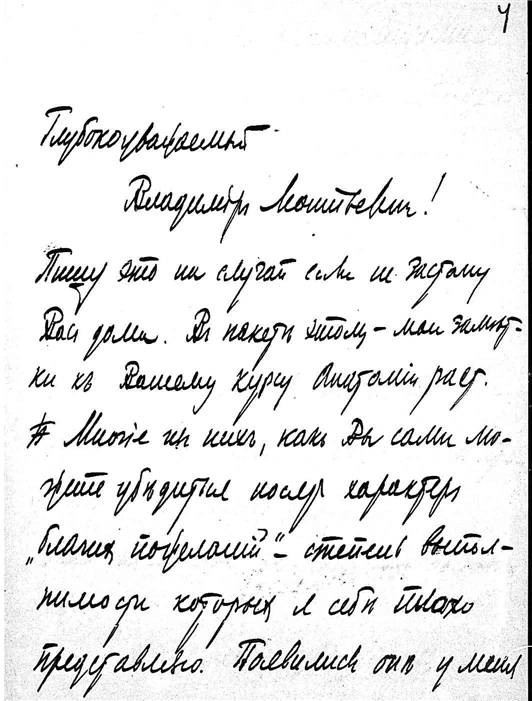 4
Глубокоуважаемый
Владиміръ Матвѣевичъ!
Пишу это на случай если не застану
Васъ дома. Въ пакетѣ этомъ – мои замѣт-
ки къ Вашему курсу Анатоміи раст.
Многіе изъ нихъ, какъ Вы сами мо-
жете убѣдиться носятъ характеръ
„благихъ пожеланій“ – степень выпол-
нимости которыхъ я себѣ плохо
представляю. Появились они у меня